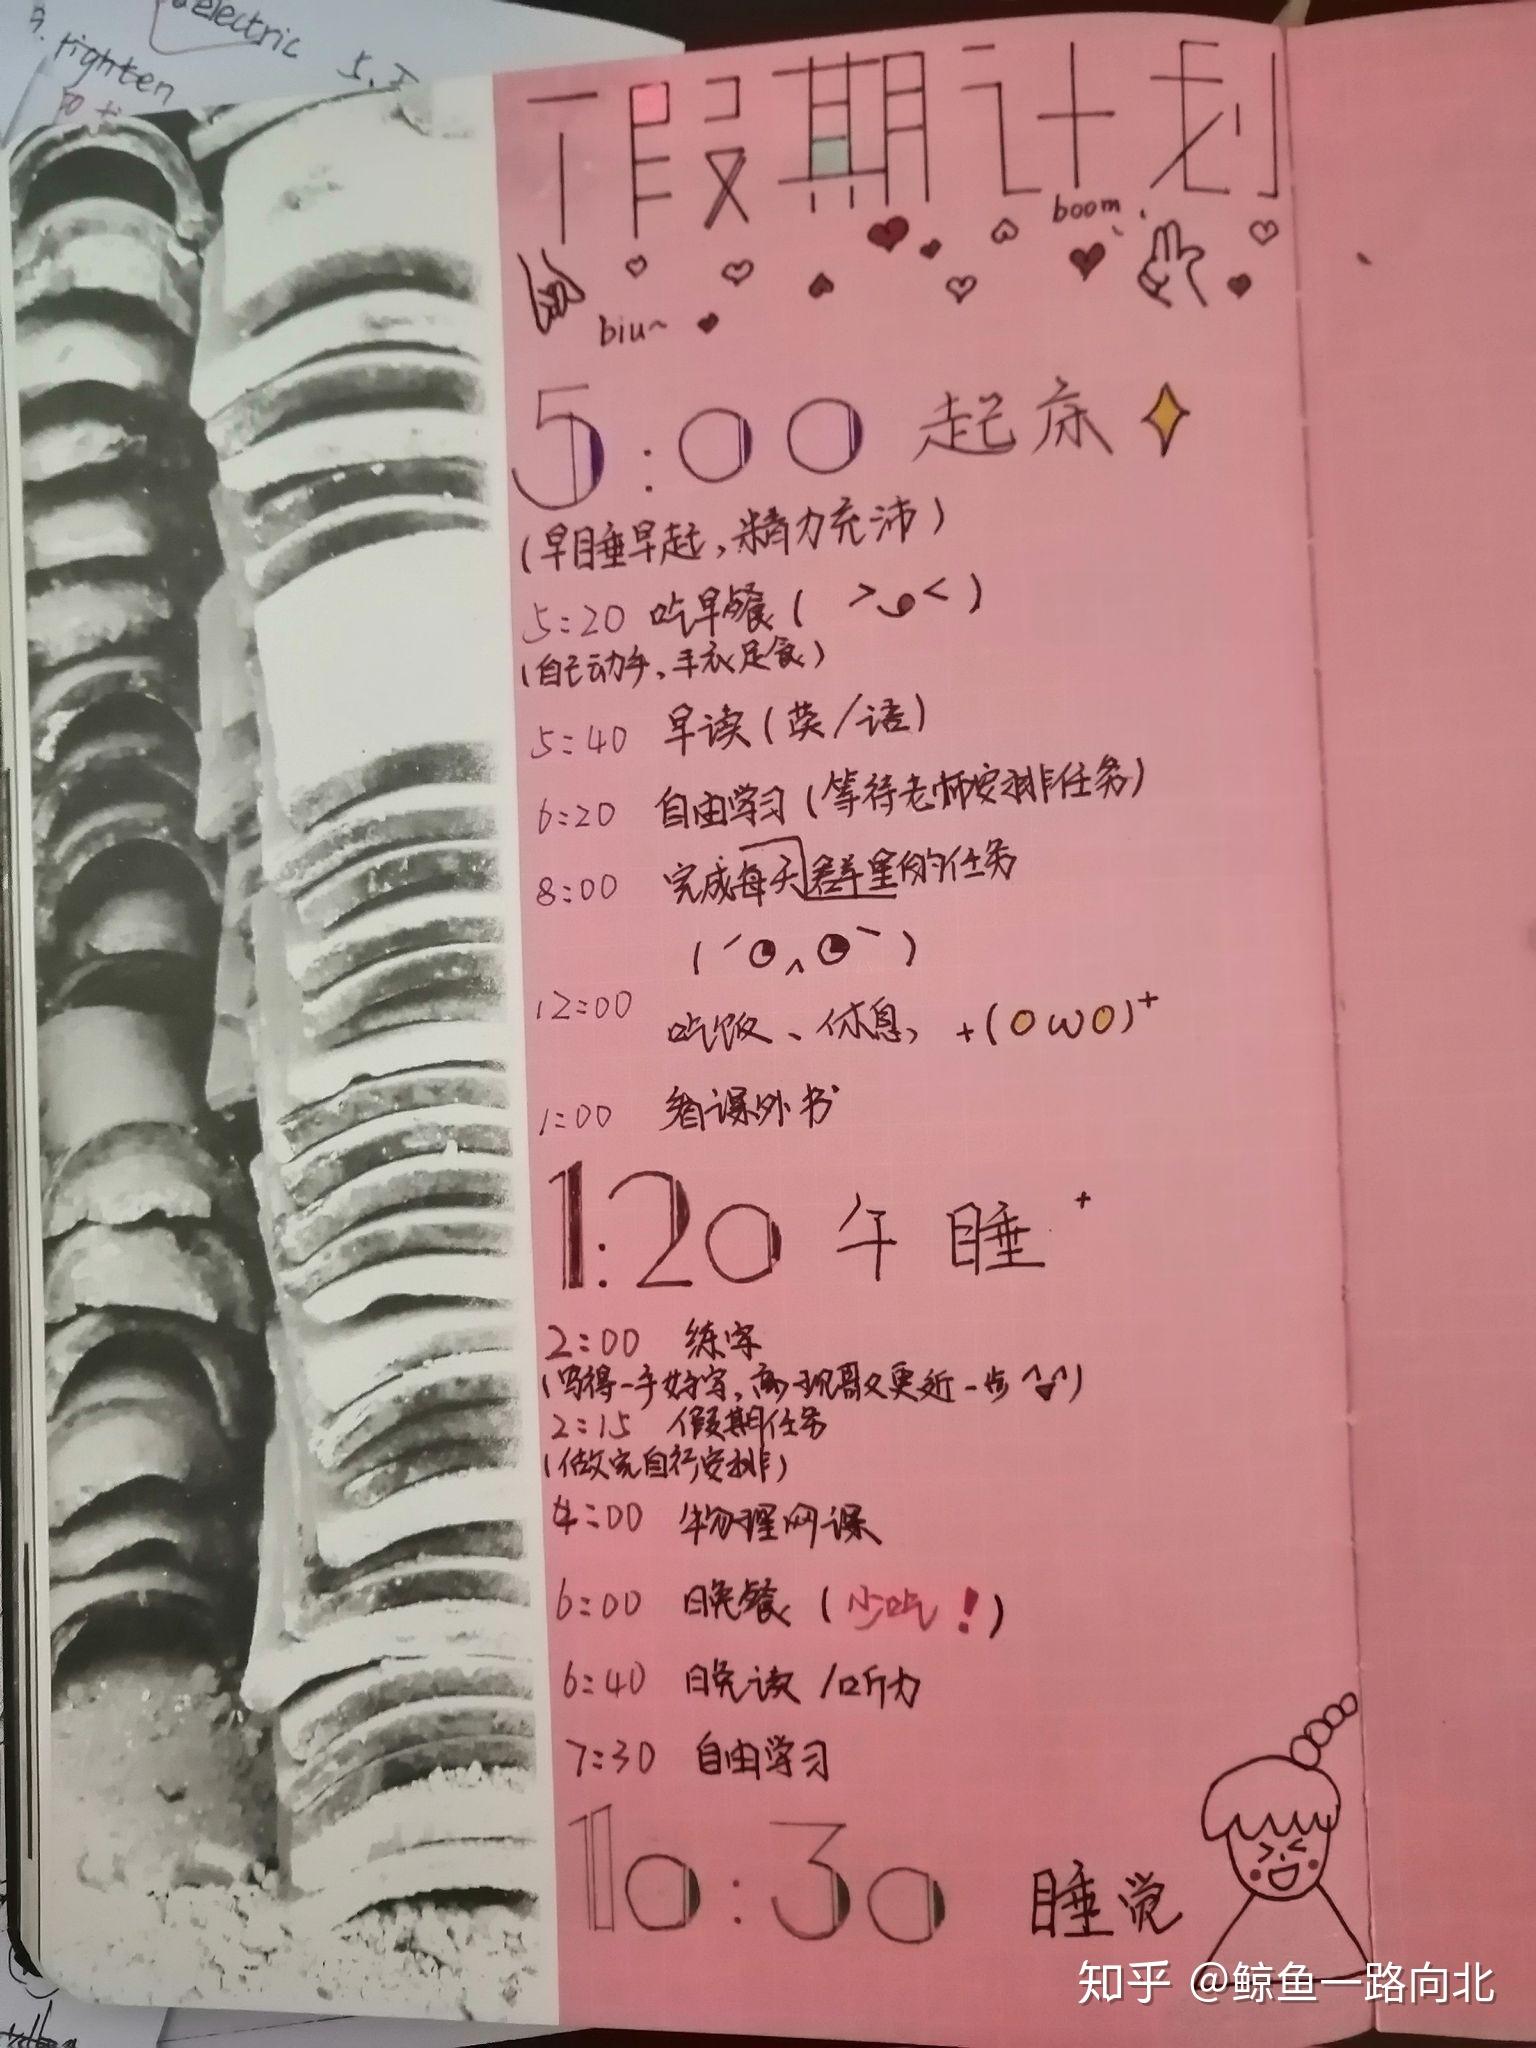 electric
5.
righten
假期计划
boom
biu~
5:00 起床
(早睡早起,精力充沛)
5:20 吃早餐( > <)
(自己动手、丰衣足食)
5:40 早读(英/语)
6:20 自由学习(等待老师安排任务)
8:00 完成每天群里的任务
12:00 吃饭、休息, +(OωO)+
1:00 看课外书
1:20 午睡+
2:00 练字
(写得一手好字,离 更近一步)
2:15 假期任务
(做完自行安排)
4:00 生物理网课
6:00 晚餐(少吃!)
6:40 晚读/听力
7:30 自由学习
10:30 睡觉
知乎 @鲸鱼一路向北